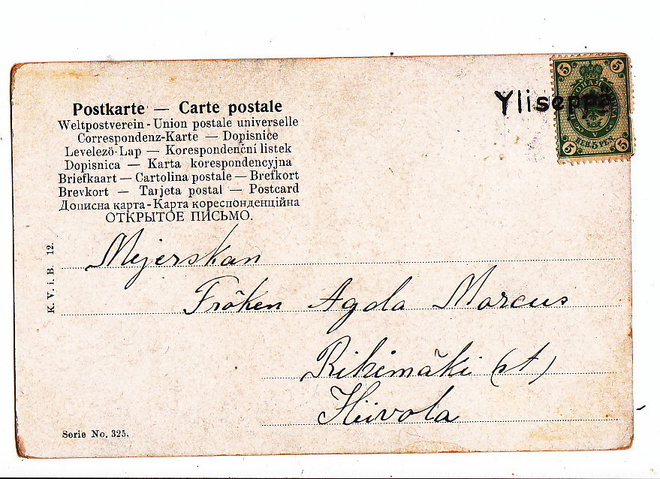 Postkarte — Carte postale
Weltpostverein - Union postale universelle
Correspondenz-Karte — Dopisnice
Levelező-Lap — Korespondenční listek
Dopisnica — Karta korespondencyjna
Briefkaart — Cartolina postale — Brefkort
Brevkort — Tarjeta postal — Postcard
Дописна карта - Карта кореспонденційна
ОТКРЫТОЕ ПИСЬМО.
Yliseppä
5 5
5 5
PEN. 5 PEN.
K. V. i. B. 12.
Mejerskan
Fröken Agda Marcus
Rihimäki (st)
Hiivola
Serie No. 325.